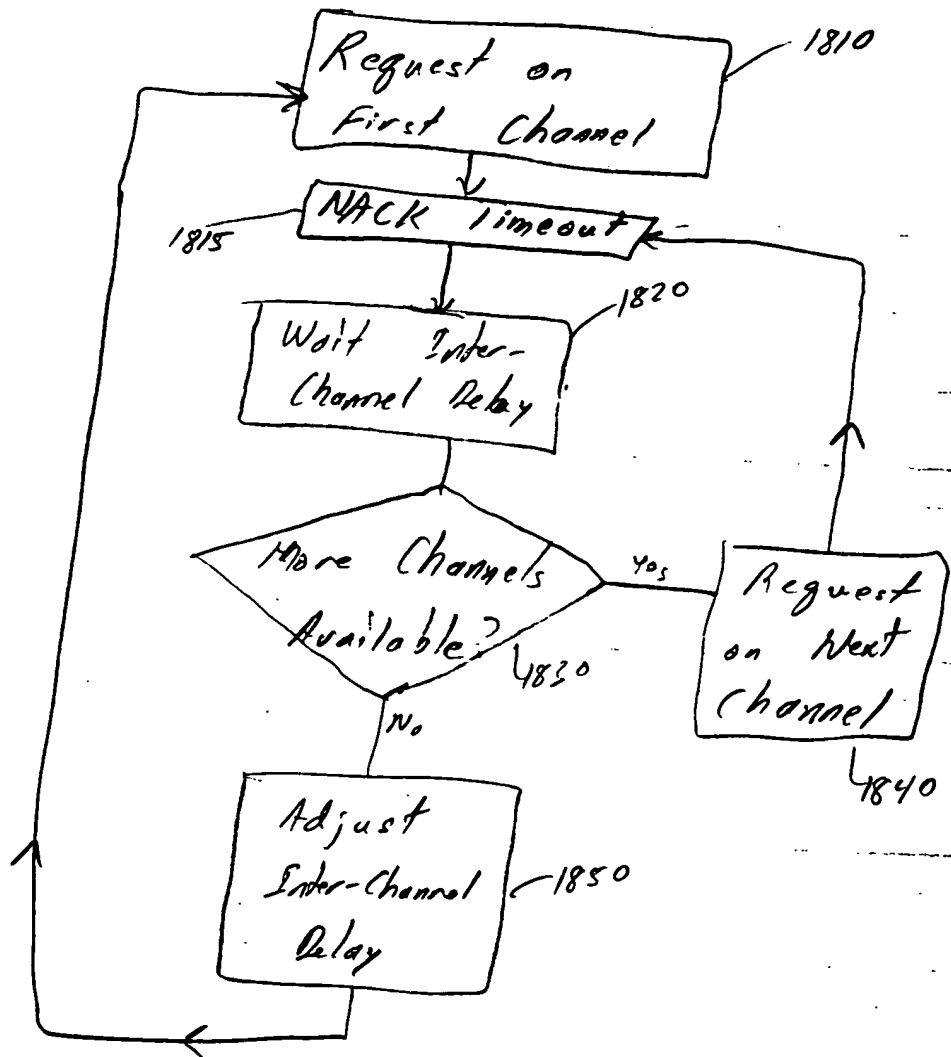 Request on
First Channel
1810
NACK Timeout
1815
Wait Inter-
Channel Delay
1820
More Channels
Available?
1830
Yes
Request
on Next
Channel
1840
No
Adjust
Inter-Channel
Delay
1850